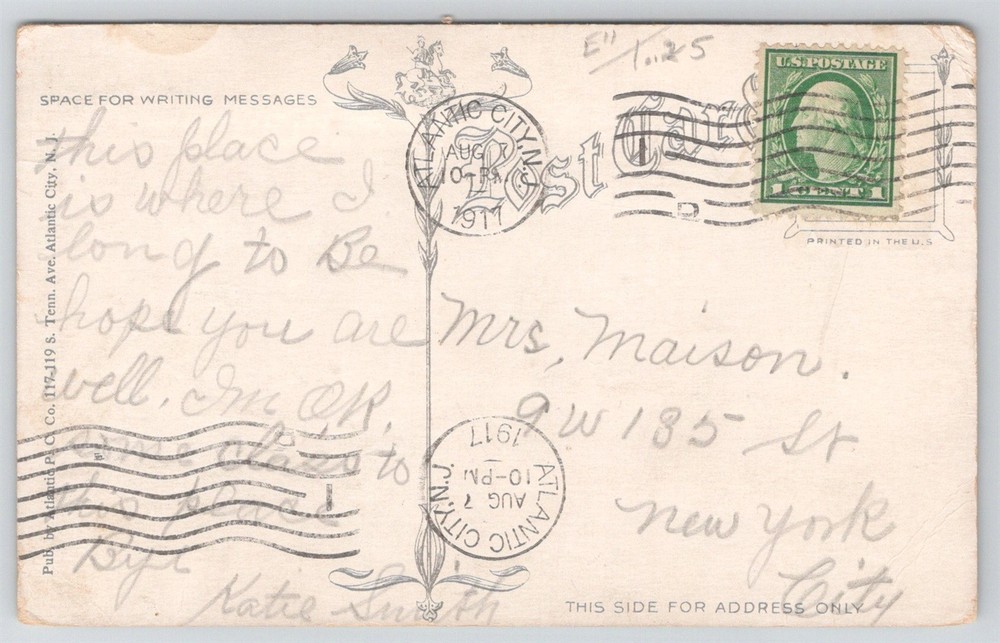 E" / 1.25
SPACE FOR WRITING MESSAGES
Post Card
U.S. POSTAGE
1 CENT 1
PRINTED IN THE U.S
ATLANTIC CITY, N.J.
AUG 7
10-PM
1917
Pub. by Atlantic P. C. Co. 117-119 S. Tenn. Ave. Atlantic City, N. J.
this place
is where I
long to Be
hope you are
well. Im OK.
to
this place
Bye
Katie Smith
Mrs, Maison.
9 W 135 St
New York
City
1917
ATLANTIC CITY, N.J.
AUG 7
10-PM
THIS SIDE FOR ADDRESS ONLY